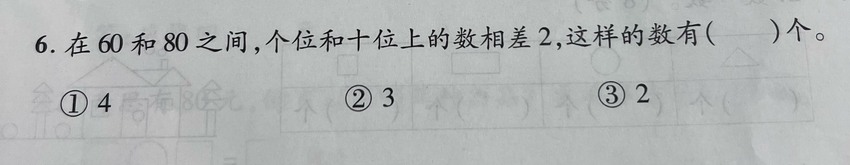 6. 在 60 和 80 之间,个位和十位上的数相差 2,这样的数有(  )个。
① 4 ② 3 ③ 2